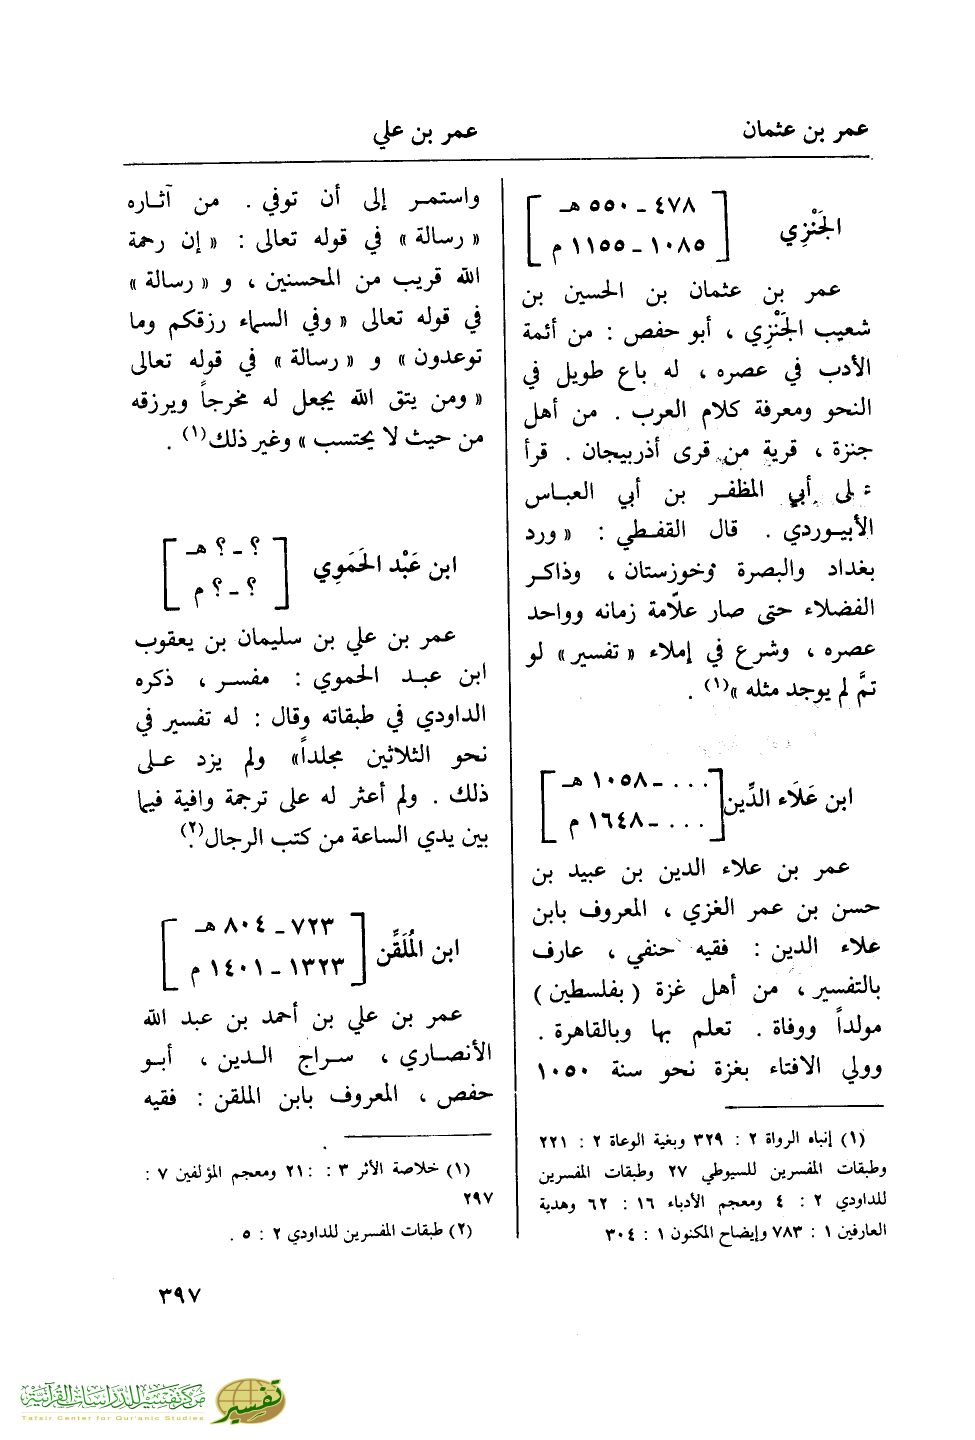 عمر بن عثمان
عمر بن علي
الجَنْزِي
٤٧٨ ـ ٥٥٠ هـ
١٠٨٥ ـ ١١٥٥ م
عمر بن عثمان بن الحسين بن
شعيب الجَنْزِي ، أبو حفص : من أئمة
الأدب في عصره ، له باع طويل في
النحو ومعرفة كلام العرب . من أهل
جنزة ، قرية من قرى أذربيجان . قرأ
على أبي المظفر بن أبي العباس
الأبيوردي . قال القفطي : « ورد
بغداد والبصرة وخوزستان ، وذاكر
الفضلاء حتى صار علّامة زمانه وواحد
عصره ، وشرع في إملاء « تفسير » لو
تمَّ لم يوجد مثله »(١) .
ابن عَلَاء الدِّين
... ـ ١٠٥٨ هـ
... ـ ١٦٤٨ م
عمر بن علاء الدين بن عبيد بن
حسن بن عمر الغزي ، المعروف بابن
علاء الدين : فقيه حنفي ، عارف
بالتفسير ، من أهل غزة ( بفلسطين )
مولداً ووفاة . تعلم بها وبالقاهرة .
وولي الافتاء بغزة نحو سنة ١٠٥٠
(١) إنباه الرواة ٢ : ٣٢٩ وبغية الوعاة ٢ : ٢٢١
وطبقات المفسرين للسيوطي ٢٧ وطبقات المفسرين
للداودي ٢ : ٤ ومعجم الأدباء ١٦ : ٦٢ وهدية
العارفين ١ : ٧٨٣ وإيضاح المكنون ١ : ٣٠٤
واستمر إلى أن توفي . من آثاره
« رسالة » في قوله تعالى : « إن رحمة
الله قريب من المحسنين ، و « رسالة »
في قوله تعالى « وفي السماء رزقكم وما
توعدون » و « رسالة » في قوله تعالى
« ومن يتق الله يجعل له مخرجاً ويرزقه
من حيث لا يحتسب » وغير ذلك(١) .
ابن عَبْد الحَمَوِي
؟ ـ ؟ هـ
؟ ـ ؟ م
عمر بن علي بن سليمان بن يعقوب
ابن عبد الحموي : مفسر ، ذكره
الداودي في طبقاته وقال : له تفسير في
نحو الثلاثين مجلداً» ولم يزد على
ذلك . ولم أعثر له على ترجمة وافية فيما
بين يدي الساعة من كتب الرجال(٢).
ابن المُلَقِّن
٧٢٣ ـ ٨٠٤ هـ
١٣٢٣ ـ ١٤٠١ م
عمر بن علي بن أحمد بن عبد الله
الأنصاري ، سراج الدين ، أبو
حفص ، المعروف بابن الملقن : فقيه
(١) خلاصة الأثر ٣ : ٢١ ومعجم المؤلفين ٧ :
٢٩٧
(٢) طبقات المفسرين للداودي ٢ : ٥ .
٣٩٧
مركز تفسير للدراسات القرآنية
Tafsir Center for Qur'anic Studies
تفسير